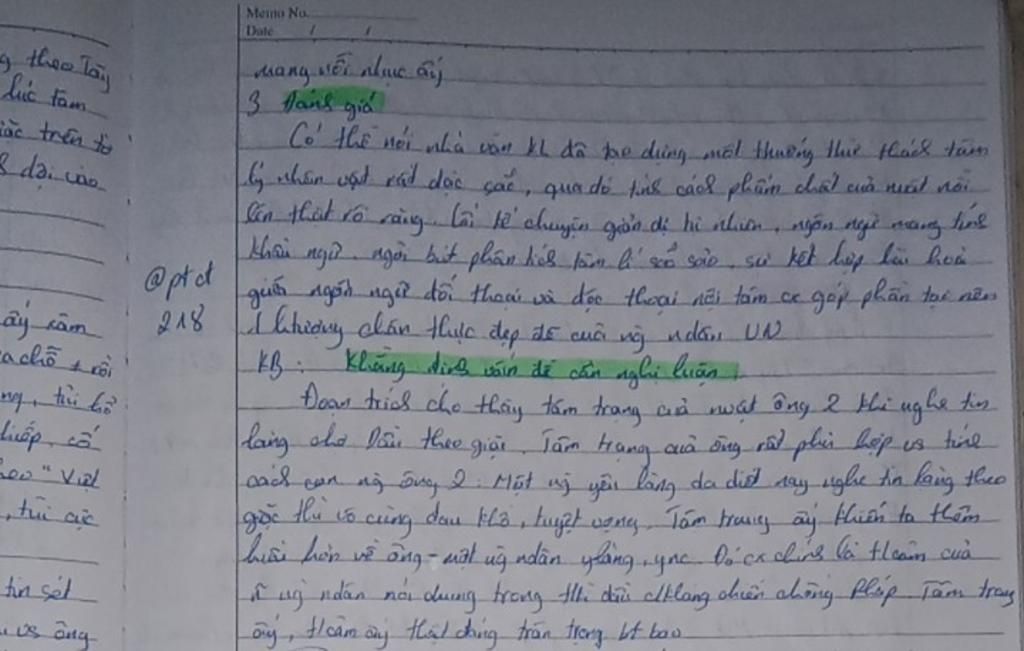 Memo No.
Date / /
g theo Tây
lúc tâm
iác trên tờ
s dài vào
ây cầm
a chỗ + rồi
ng, tủi hổ
hiếp, cố
heo "Việt
, tủi cực
tin sét
us ông
@ptct
218
mang nỗi nhục ấy
3 Đánh giá
Có thể nói nhà văn KL đã tạo dựng một thường thử thách tâm
lý nhân vật rất đặc sắc, qua đó tính cách phẩm chất của nvật nổi
lên thật rõ ràng. Lối kể chuyện giản dị hi nhiên, ngôn ngữ mang tính
khẩu ngữ, ngòi bút phân tích tâm lí sắc sảo, sự kết hợp hài hoà
giữa ngôn ngữ đối thoại và độc thoại nội tâm cx góp phần tạo nên
1 chương chân thực đẹp đẽ của ng ndân VN
KB: Khẳng định vấn đề cần nghị luận.
Đoạn trích cho thấy tâm trạng của nvật ông 2 khi nghe tin
làng chợ Dầu theo giặc. Tâm trạng của ông rất phù hợp vs tính
cách con ng ông 2. Một ng yêu làng da diết nay nghe tin làng theo
giặc thì vô cùng đau khổ, tuyệt vọng. Tâm trạng ấy khiến ta thêm
hiểu hơn về ông - một ng ndân ylàng, ync. Đó cx chính là tcảm của
ng ndân nói chung trong thời đầu kháng chiến chống Pháp. Tâm trạng
ấy, tcảm ấy thật đáng trân trọng bt bao